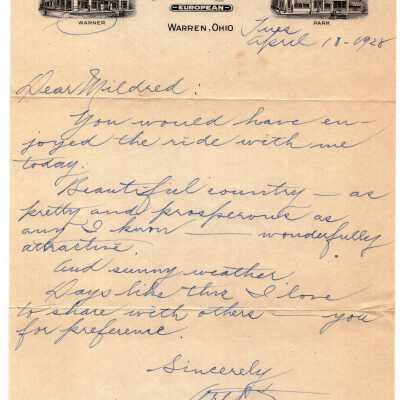 EUROPEAN
WARNER
WARREN, OHIO
PARK
Tues
April 18-1928
Dear Mildred:
You would have en-
joyed the ride with me
today.
Beautiful country — as
pretty and prosperous as
any I know — wonderfully
attractive
and sunny weather
Days like this I love
to share with others — you
for preference.
Sincerely